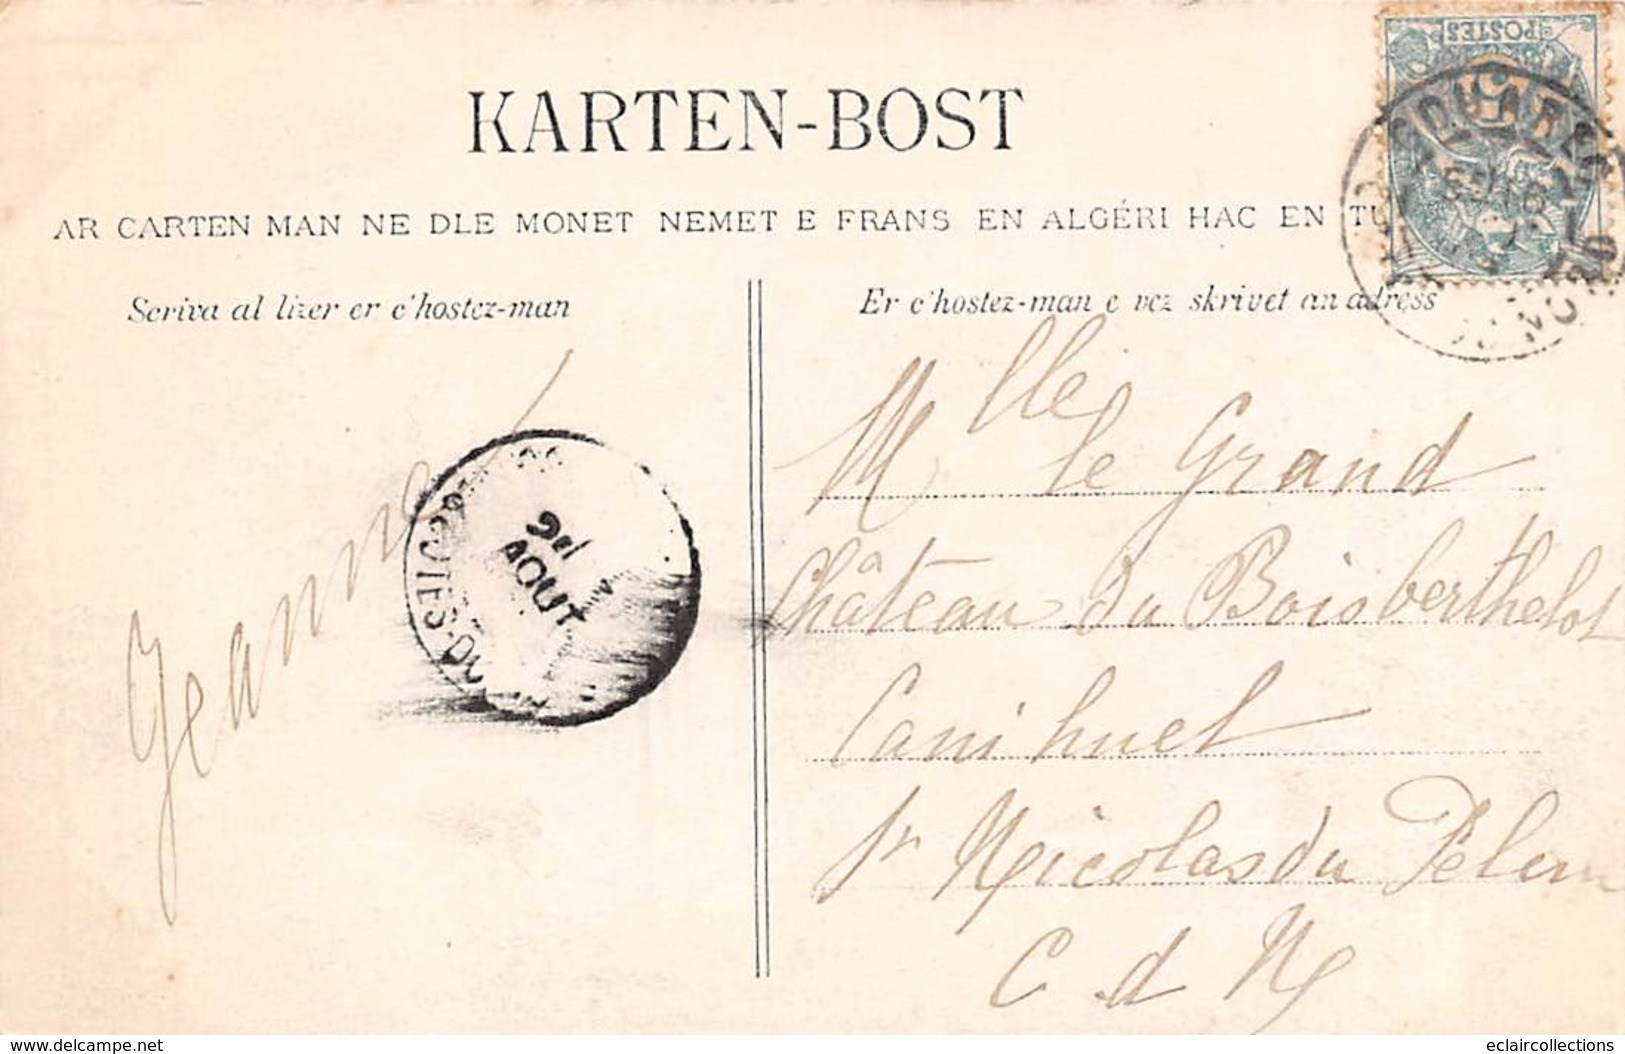 POSTES
KARTEN-BOST
AR CARTEN MAN NE DLE MONET NEMET E FRANS EN ALGÉRI HAC EN
Scriva al lizer er c'hostez-man
Er c'hostez-man e vez skrivet an adress
Jeanne
AOUT
Mlle le Grand
Château du Boisberthelot
Canihuel
St Nicolas du Pélem
C d N
www.delcampe.net
eclaircollections